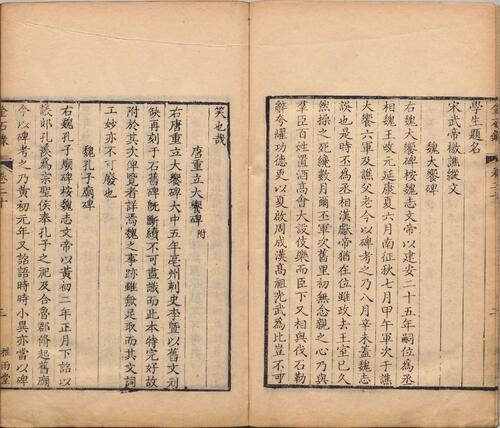 學生題名
宋武帝檄譙縱文
魏大饗碑
右魏大饗碑按魏志文帝以建安二十五年嗣位為丞
相魏王改元延康夏六月南征秋七月甲午軍次于譙
大饗六軍及譙父老今以碑考之乃八月辛未蓋魏志
誤也是時丕為丞相漢獻帝猶在位雖政去王室已久
然操之死纔數月爾丕軍次舊里初無念親之心乃與
羣臣百姓置酒高會大設伎樂而臣下又相與伐石勒
辭夸耀功德更以夏啟周成漢高祖光武為比豈不可
笑也哉
唐重立大饗碑 附
右唐重立大饗碑大中五年亳州刺史李暨以舊文刓
缺再刻于石舊碑既斷續不可盡識而此本特完好故
附於其次俾覽者詳焉魏之事跡雖無足取而其文詞
工妙亦不可廢也
魏孔子廟碑
右魏孔子廟碑按魏志文帝以黃初二年正月下詔以
議郎孔羨為宗聖侯奉孔子之祀及令魯郡脩起舊廟
今以碑考之乃黃初元年又詔語時時小異亦當以碑
金石錄 卷二十
三 雅雨堂